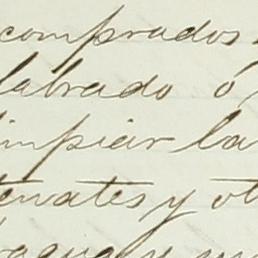 comprados
labrado ó
limpiar la
tenates y ot